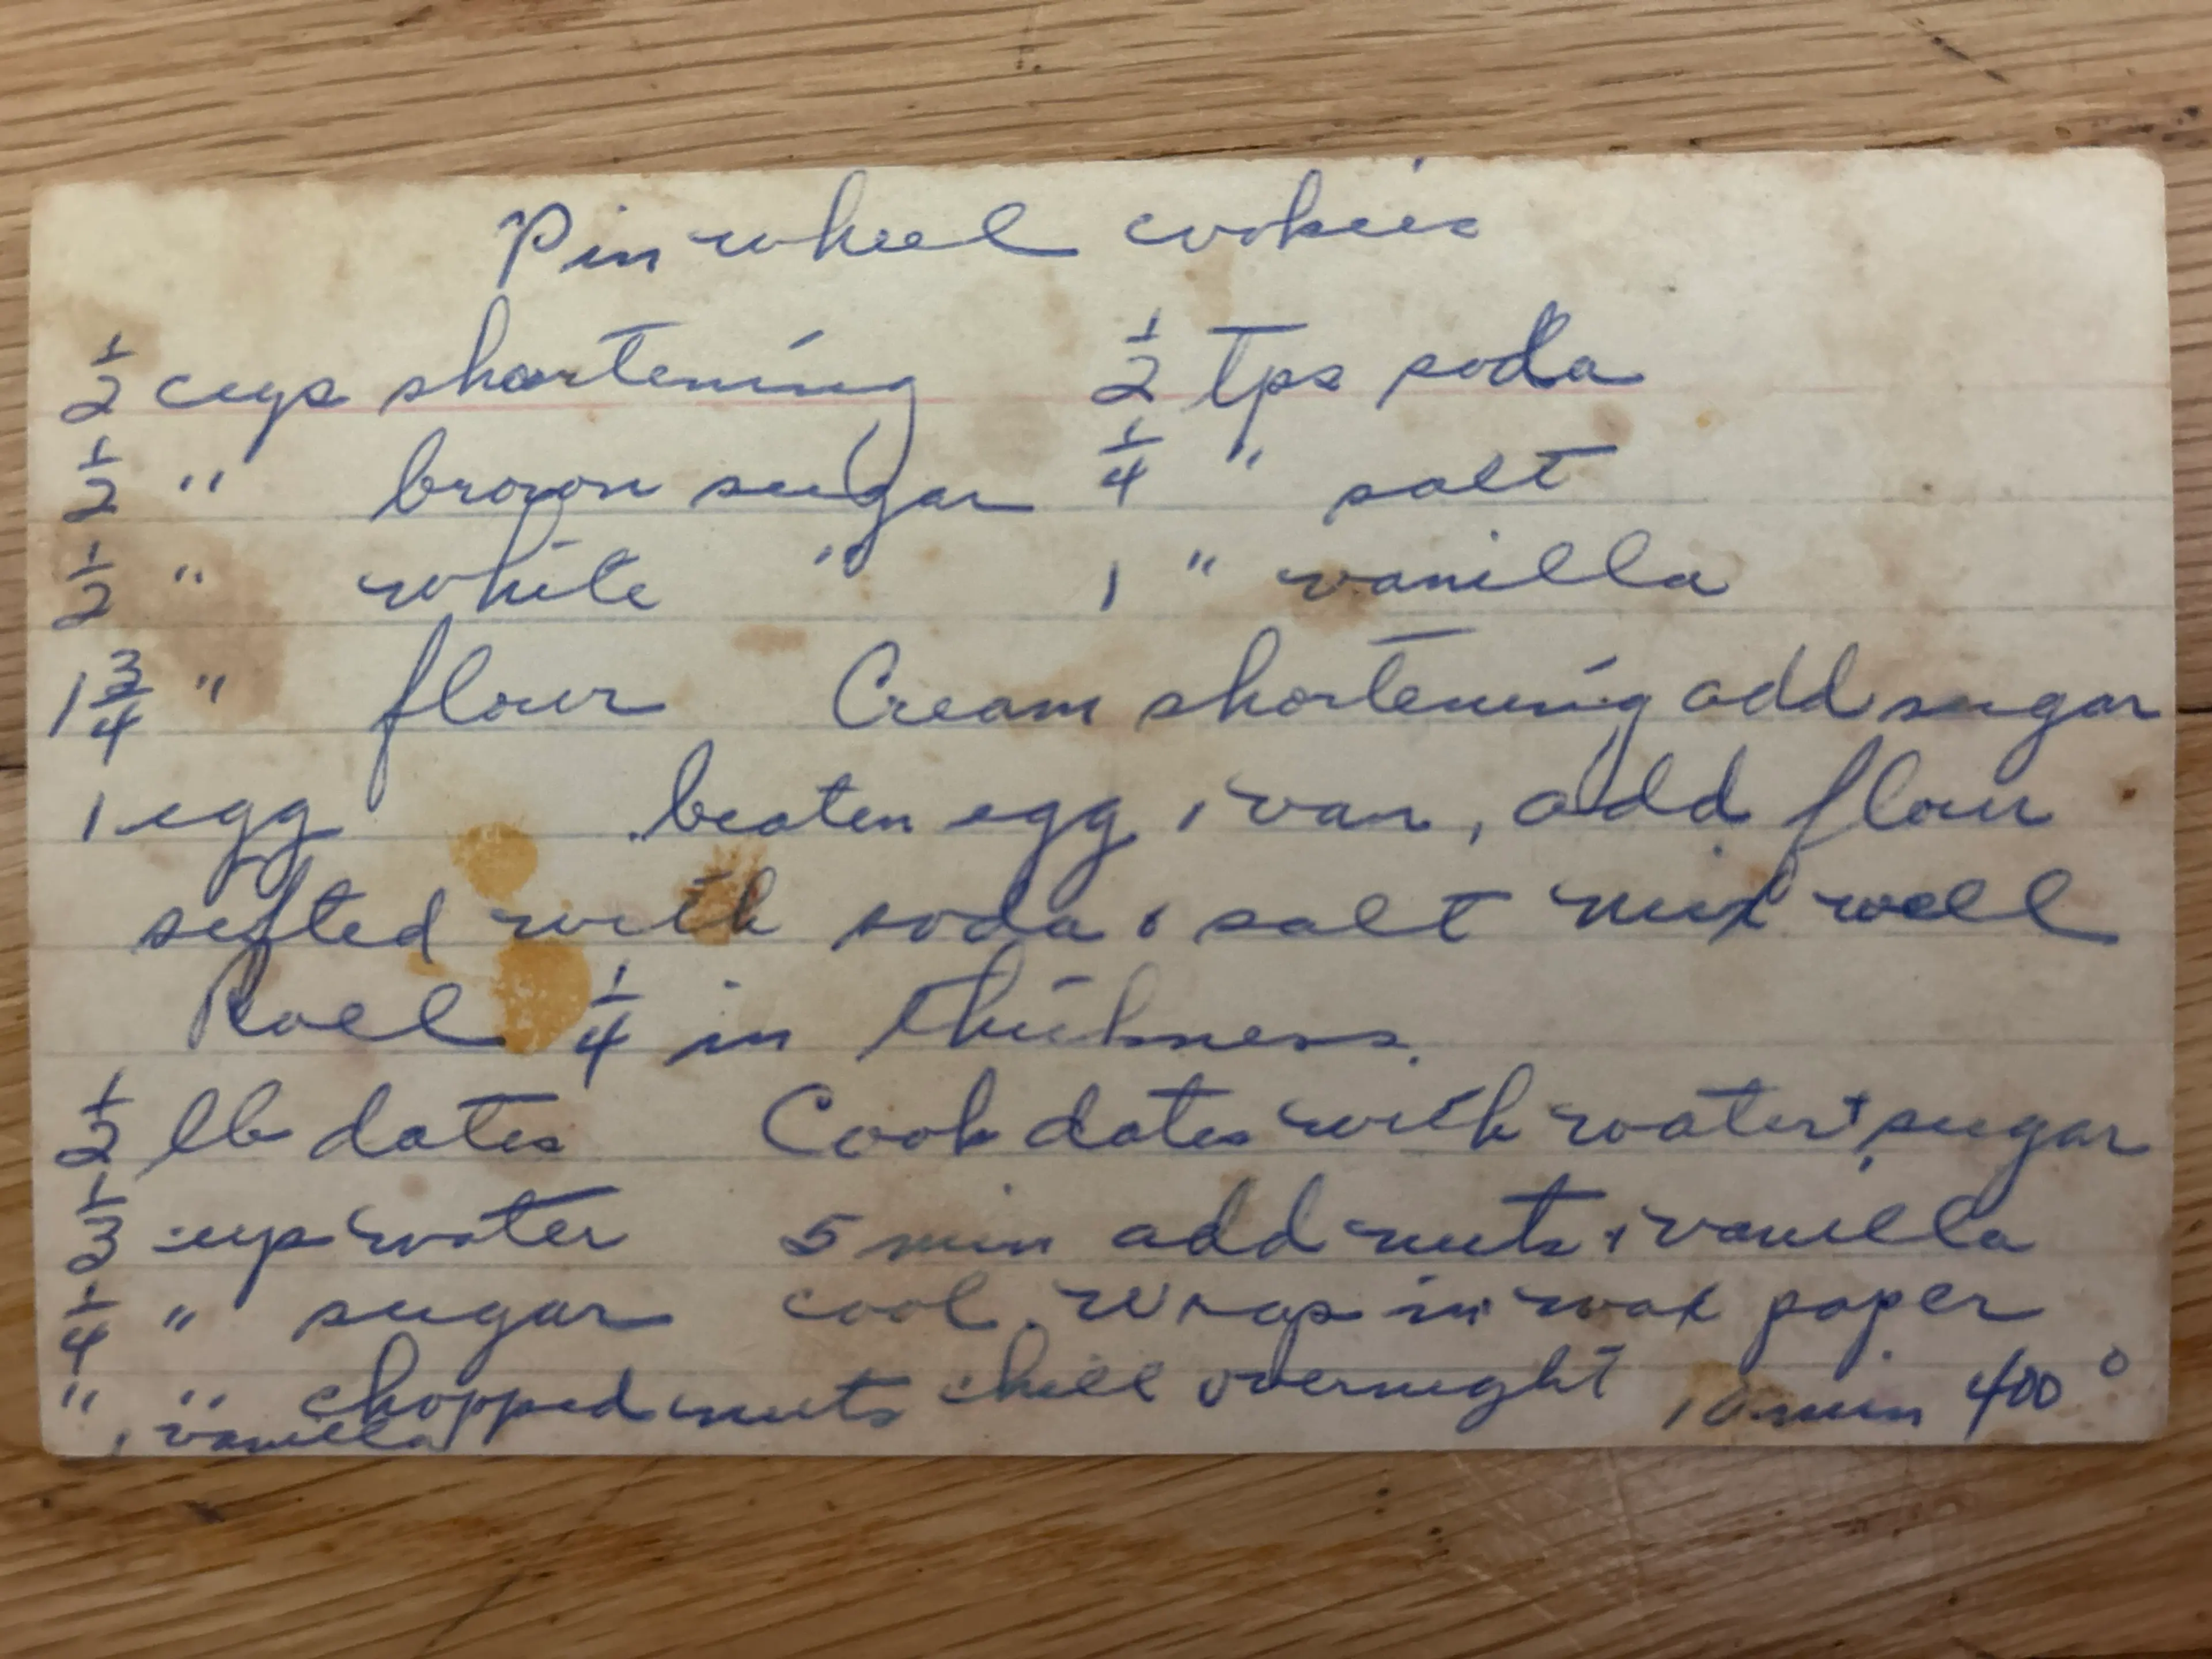 Pinwheel cookies
1/2 cups shortening 1/2 tps soda
1/2 " brown sugar 1/4 " salt
1/2 " white " 1 " vanilla
1 3/4 " flour Cream shortening add sugar
1 egg beaten egg, van, add flour
sifted with soda & salt mix well
Roll 1/4 in thickness.
1/2 lb dates Cook dates with water + sugar
1/3 cup water 5 min add nuts & vanilla
1/4 " sugar cool. Wrap in wax paper
" " chopped nuts chill overnight 10 min 400°
" , vanilla